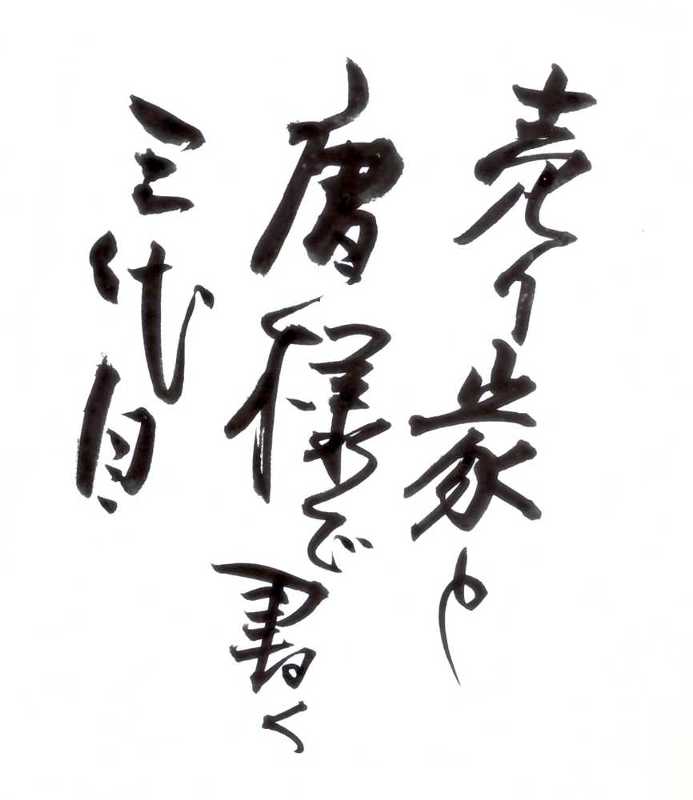 売り家と
唐様で書く
三代目